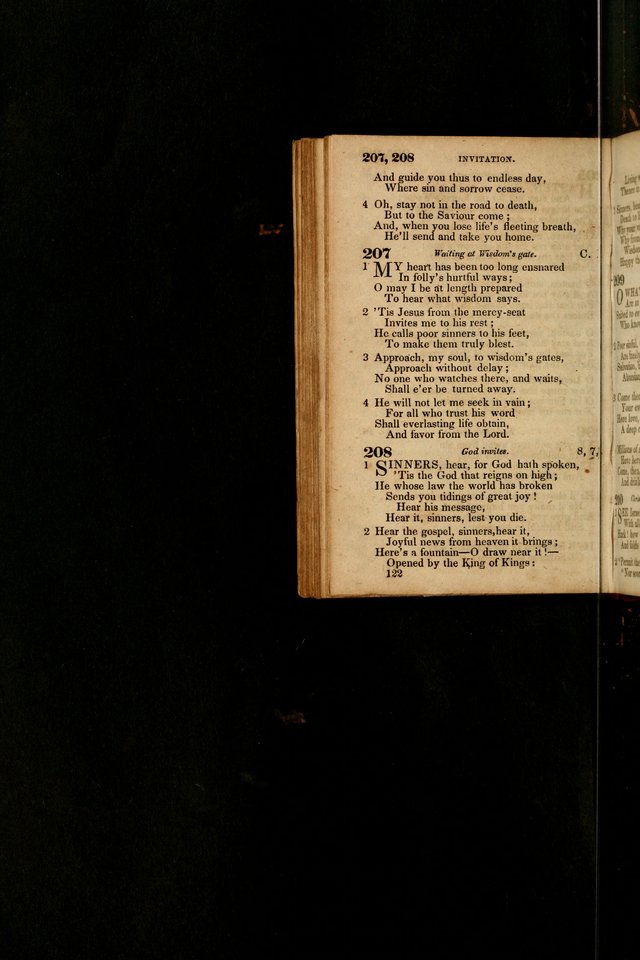 207, 208 INVITATION.
And guide you thus to endless day,
Where sin and sorrow cease.
4 Oh, stay not in the road to death,
But to the Saviour come;
And, when you lose life's fleeting breath,
He'll send and take you home.
207 Waiting at Wisdom's gate. C.
1 MY heart has been too long ensnared
In folly's hurtful ways;
O may I be at length prepared
To hear what wisdom says.
2 'Tis Jesus from the mercy-seat
Invites me to his rest;
He calls poor sinners to his feet,
To make them truly blest.
3 Approach, my soul, to wisdom's gates,
Approach without delay;
No one who watches there, and waits,
Shall e'er be turned away.
4 He will not let me seek in vain;
For all who trust his word
Shall everlasting life obtain,
And favor from the Lord.
208 God invites. 8, 7,
1 SINNERS, hear, for God hath spoken,
'Tis the God that reigns on high;
He whose law the world has broken
Sends you tidings of great joy!
Hear his message,
Hear it, sinners, lest you die.
2 Hear the gospel, sinners,hear it,
Joyful news from heaven it brings;
Here's a fountain—O draw near it!—
Opened by the King of Kings:
122
209
210